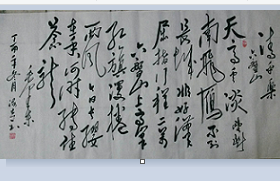 清平樂
六盘山
天高云淡 望断
南飞雁 不到
长城非好汉
屈指行程二万
六盘山上高峰
红旗漫卷
西风 今日长缨
在手 何时缚住
苍龙